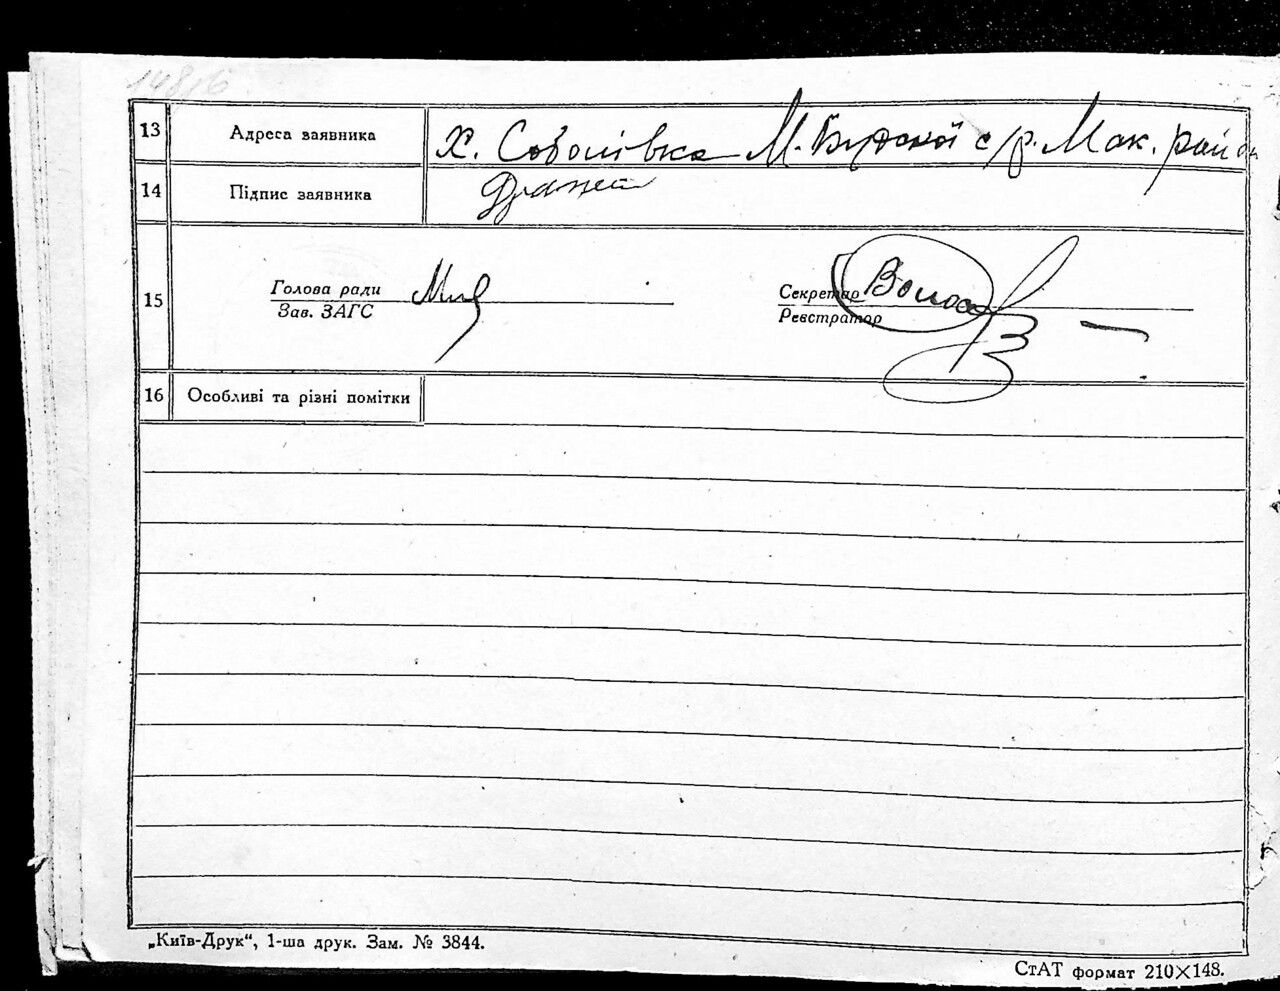 148/6
13 Адреса заявника Х. Соболівка М. Будської с/р. Мак. район
14 Підпис заявника
15 Голова ради Секретар
Зав. ЗАГС Реєстратор
16 Особливі та різні помітки
„Київ-Друк“, 1-ша друк. Зам. № 3844.
СтАТ формат 210×148.